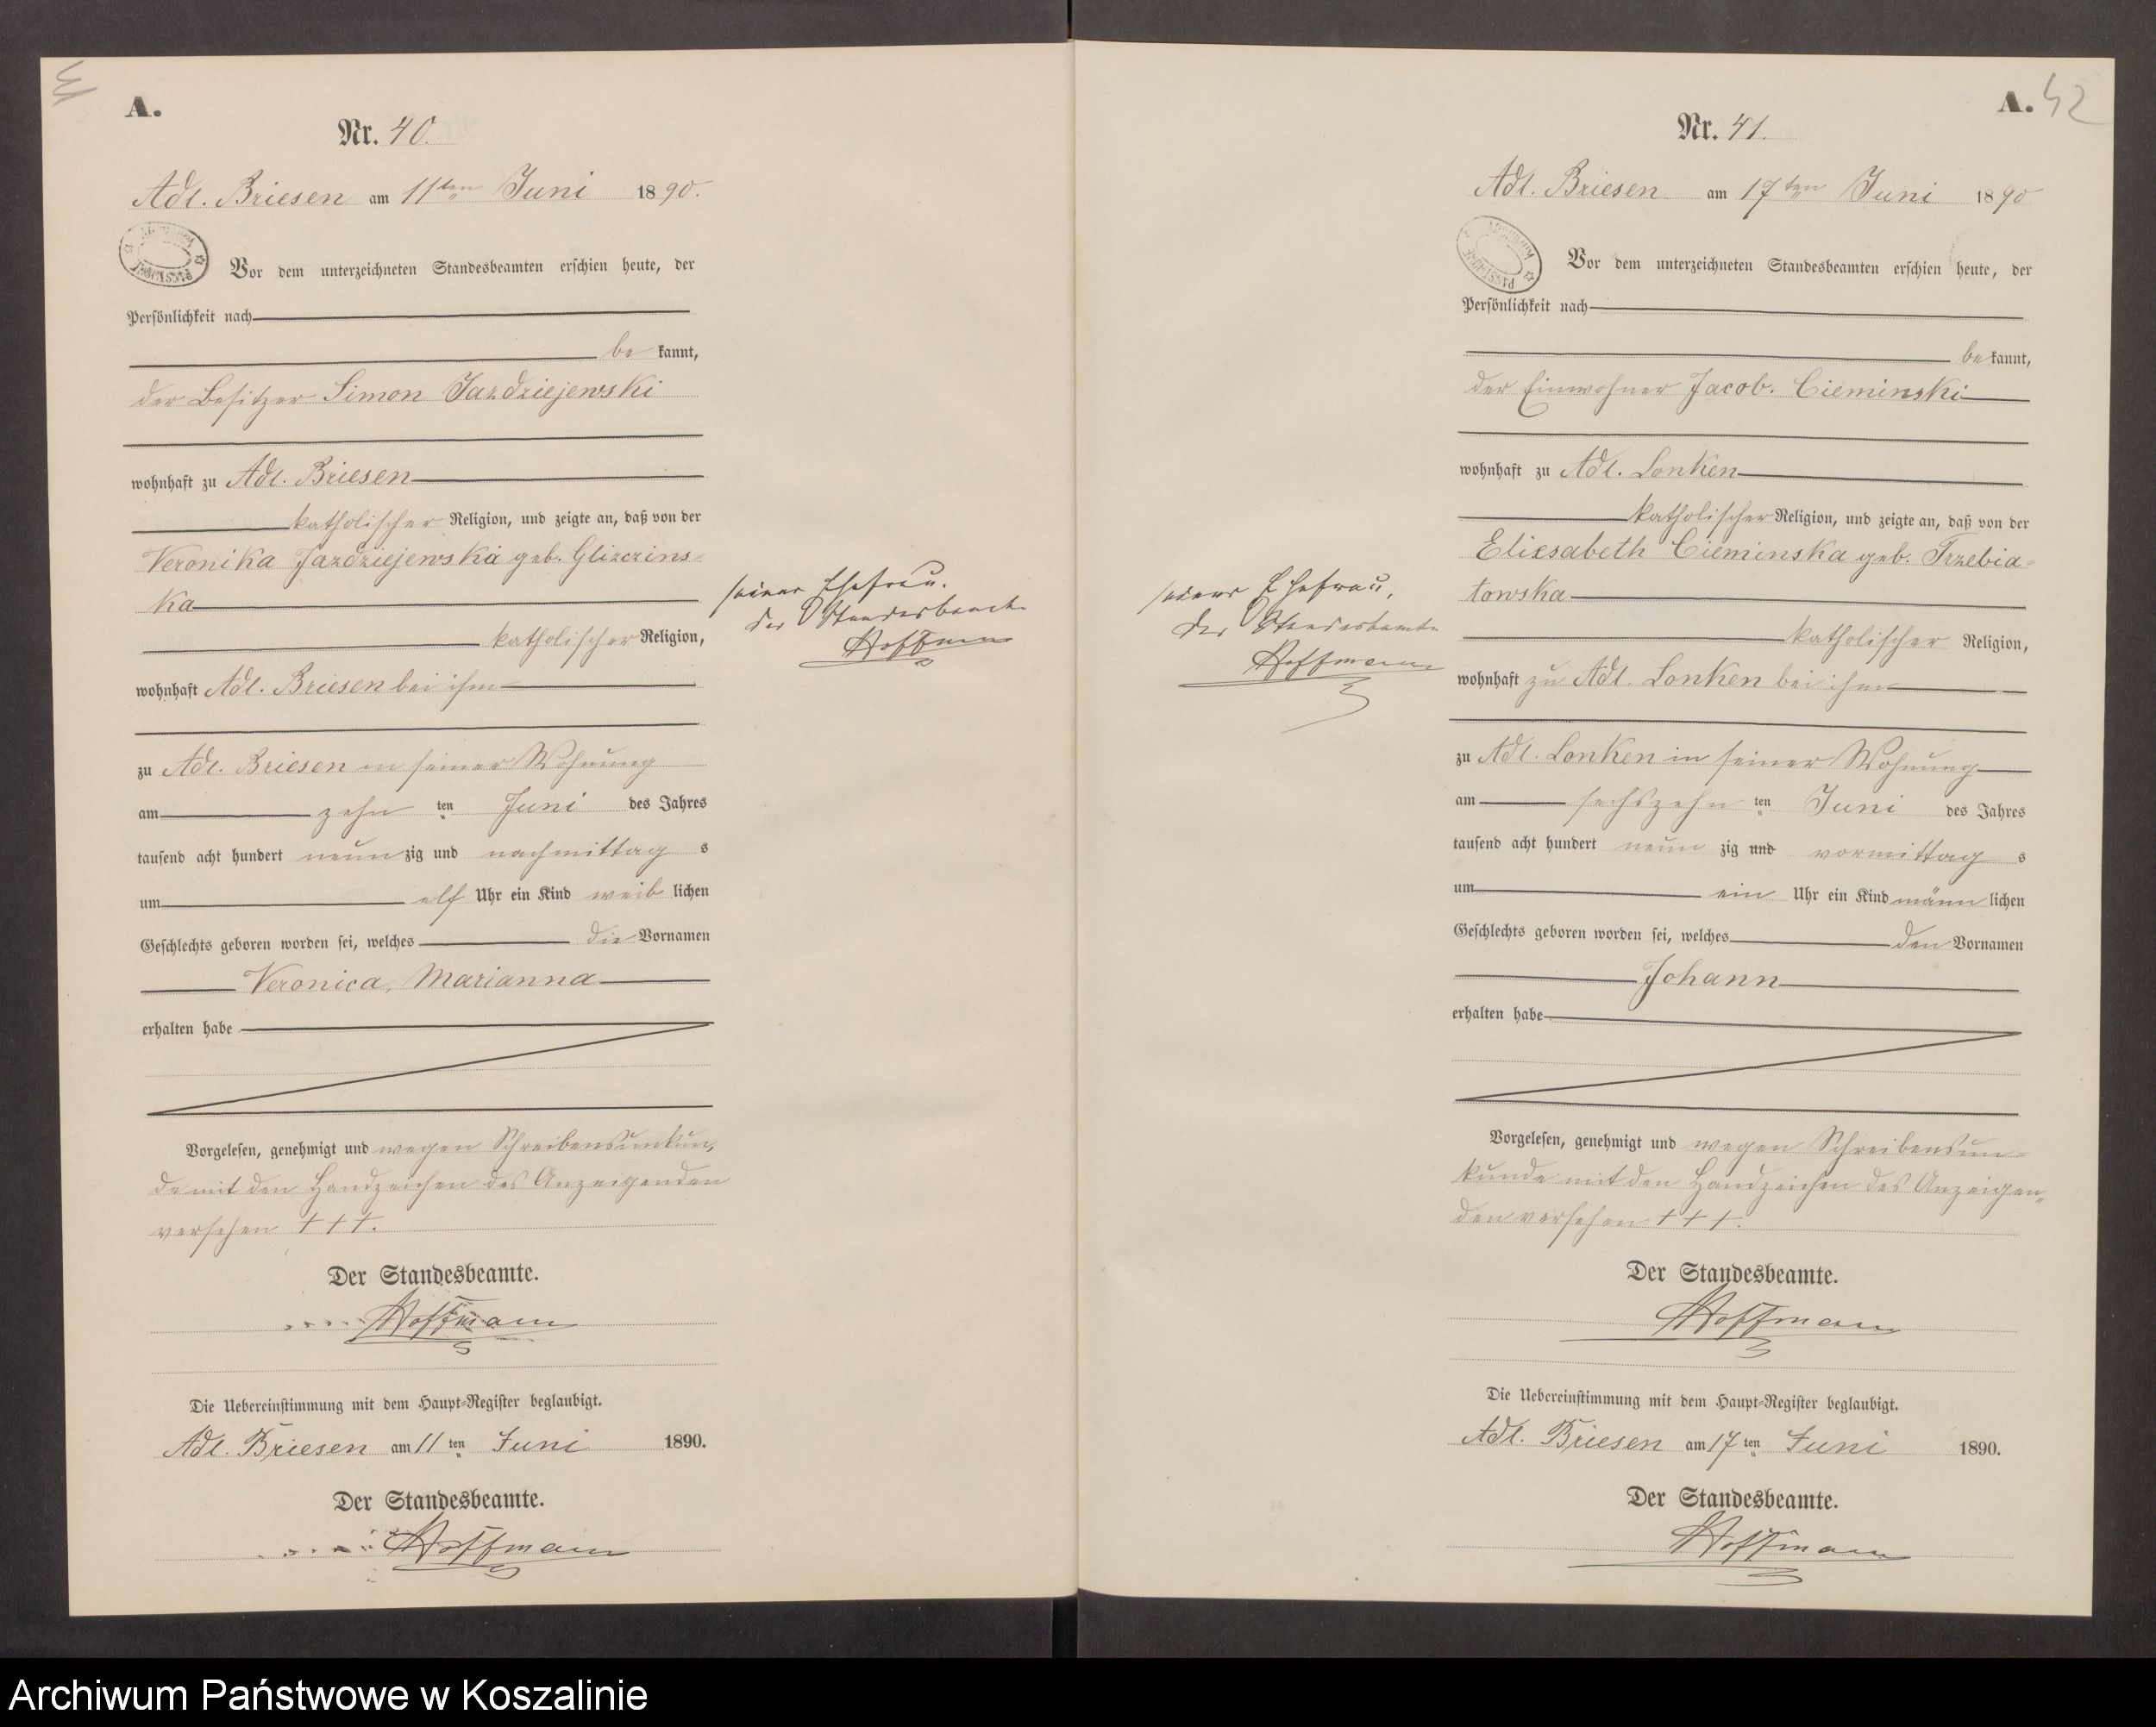 A.
Nr. 40.
Adl. Briesen am 11ten Juni 1890.
Vor dem unterzeichneten Standesbeamten erschien heute, der
Persönlichkeit nach
be kannt,
der Besitzer Simon Jazdziejewski
wohnhaft zu Adl. Briesen
katholischer Religion, und zeigte an, daß von der
Veronika Jazdziejewska geb. Glizczins-
ka
katholischer Religion,
wohnhaft Adl. Briesen bei ihm
zu Adl. Briesen in seiner Wohnung
am zehn ten Juni des Jahres
tausend acht hundert neun zig und nachmittag s
um elf Uhr ein Kind weib lichen
Geschlechts geboren worden sei, welches die Vornamen
Veronica, Marianna
erhalten habe
Vorgelesen, genehmigt und wegen Schreibensunkun-
de mit den Handzeichen des Anzeigenden
versehen + + +.
Der Standesbeamte.
Hoffmann
Die Uebereinstimmung mit dem Haupt-Register beglaubigt.
Adl. Briesen am 11 ten Juni 1890.
Der Standesbeamte.
Hoffmann
seiner Ehefrau.
Der Standesbeamte
Hoffmann
A. 42
Nr. 41.
Adl. Briesen am 17ten Juni 1890
Vor dem unterzeichneten Standesbeamten erschien heute, der
Persönlichkeit nach
be kannt,
der Einwohner Jacob. Cieminski
wohnhaft zu Adl. Lonken
katholischer Religion, und zeigte an, daß von der
Eliesabeth Cieminska geb. Trzebia-
towska
katholischer Religion,
wohnhaft zu Adl. Lonken bei ihm
zu Adl. Lonken in seiner Wohnung
am sechszehn ten Juni des Jahres
tausend acht hundert neun zig und vormittag s
um ein Uhr ein Kind männ lichen
Geschlechts geboren worden sei, welches den Vornamen
Johann
erhalten habe
Vorgelesen, genehmigt und wegen Schreibensun-
kunde mit den Handzeichen des Anzeigen-
den versehen + + +.
Der Standesbeamte.
Hoffmann
Die Uebereinstimmung mit dem Haupt-Register beglaubigt.
Adl. Briesen am 17 ten Juni 1890.
Der Standesbeamte.
Hoffmann
seiner Ehefrau,
Der Standesbeamte
Hoffmann
Archiwum Państwowe w Koszalinie